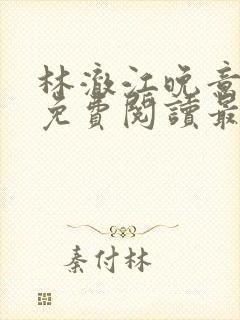 林澈江晚音
免費閱讀最
秦付林